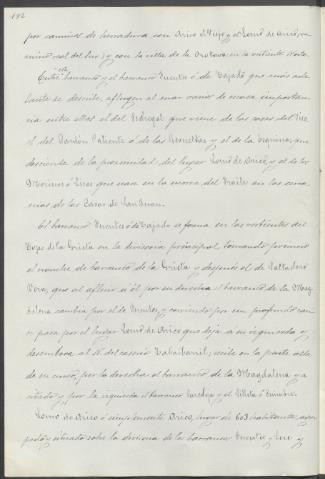 192
por caminos de herradura con Arico el Viejo y el Lomo de Arico, ca
mino real del Sur; y con la villa de la Orotava en la vertiente Norte.
Entre este barranco y el barranco Fuentes ó de Tajado que más ade
lante se describe, afluyen al mar varios de escasa importan
cia entre ellos el del Pedregal que viene de las casas del
el del Pardón Caliente ó de las y el de la
desciende de la proximidad del lugar Lomo de Arico y el de los
ó que nace en la morra del Fraile en las cerca
nías de las Casas de San Juan.
El barranco Fuentes ó de Tajado se forma en las vertientes del
Tope de la Grieta en la divisoria principal, tomando primero
el nombre de barranco de la Grieta y después el de Valladero
Vera, que al afluir á él por su derecha el barranco de la Mag
dalena cambia por el de Fuentes, y corriendo por un profundo cau
ce pasa por el lugar Lomo de Arico que deja á su izquierda y
desemboca al N. del caserío Tabaibarril; recibe en la parte alta
de su curso, por la derecha el barranco de la Magdalena ya
citado y por la izquierda el barranco y el
Lomo de Arico ó simplemente Arico, lugar de 603 habitantes, agru
pado y situado sobre la divisoria de los barrancos Fuentes y Vero, y